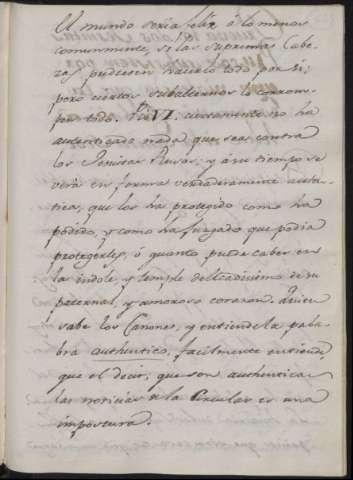 El mundo seria feliz á lo menos
comunmente, si las supremas Cabe-
zas pudiesen hacerlo todo por si;
pero ciertos subalternos lo corrom-
pen todo. Pio VI. ciertamente no ha
autenticado nada que sea contra
los Jesuitas Rusos; y á su tiempo se
verá en forma verdaderamente auten-
tica, que los ha protegido como ha
podido, y como ha juzgado que podia
protegerles, ó quanto puede caber en
la indole y temple delicadisimo de su
paternal, y amoroso corazon. Quien
sabe los Canones, y entiende la pala-
bra authentico, facilmente entiende
que el decir, que son authenticas
las noticias de la Circular es una
impostura.